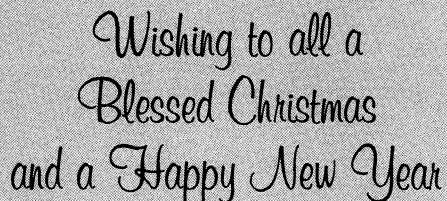 Wishing to all a
Blessed Christmas
and a Happy New Year